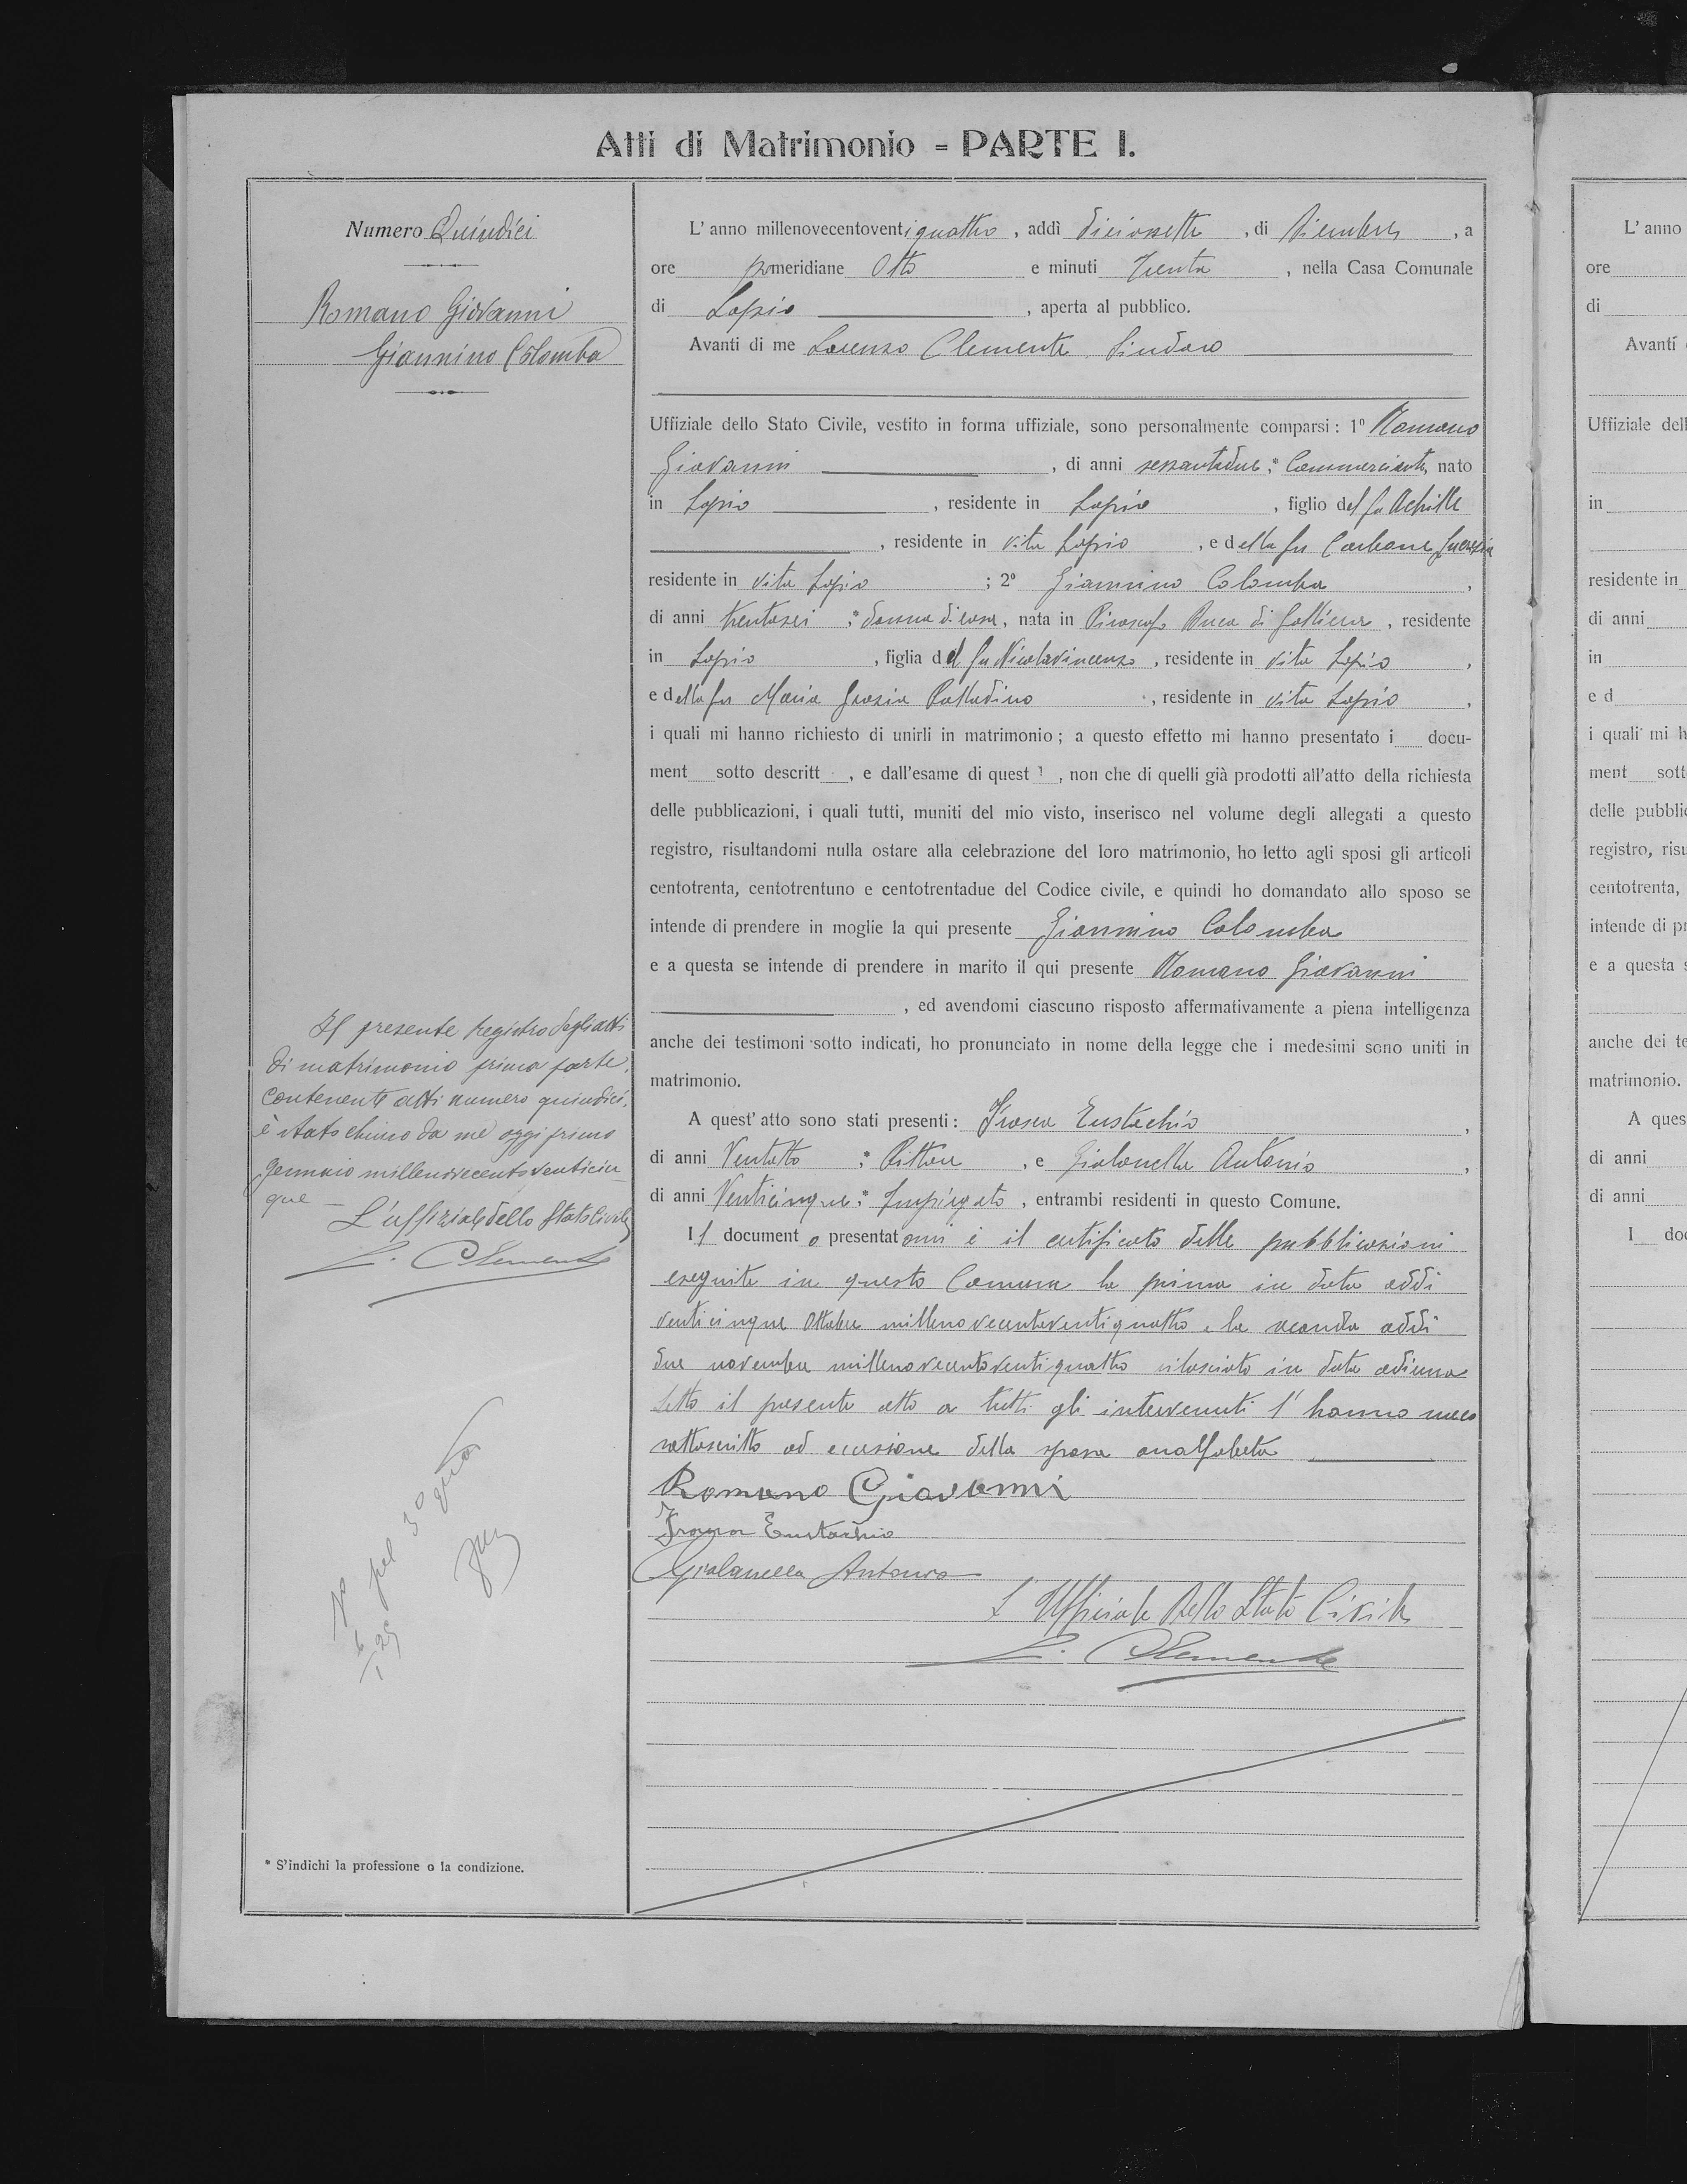 Atti di Matrimonio = PARTE I.
Numero Quindici
Romano Giovanni
Giannino Colomba
L'anno millenovecentoventiquattro, addì diciassette, di Dicembre, a
ore pomeridiane Otto e minuti Trenta, nella Casa Comunale
di Lapio, aperta al pubblico.
Avanti di me Lorenzo Clemente Sindaco
Uffiziale dello Stato Civile, vestito in forma uffiziale, sono personalmente comparsi: 1º Romano
Giovanni, di anni sessantadue;* Commerciante, nato
in Lapio, residente in Lapio, figlio del fu Achille
, residente in vita Lapio, e della fu Carbone
residente in vita Lapio; 2º Giannino Colomba,
di anni trentasei;* donna di casa, nata in Piroscafo Duca di Galliera, residente
in Lapio, figlia del fu Nicolavincenzo, residente in vita Lapio,
e della fu Maria Grazia Palladino, residente in vita Lapio,
i quali mi hanno richiesto di unirli in matrimonio; a questo effetto mi hanno presentato i docu-
ment sotto descritt , e dall'esame di quest i, non che di quelli già prodotti all'atto della richiesta
delle pubblicazioni, i quali tutti, muniti del mio visto, inserisco nel volume degli allegati a questo
registro, risultandomi nulla ostare alla celebrazione del loro matrimonio, ho letto agli sposi gli articoli
centotrenta, centotrentuno e centotrentadue del Codice civile, e quindi ho domandato allo sposo se
intende di prendere in moglie la qui presente Giannino Colomba
e a questa se intende di prendere in marito il qui presente Romano Giovanni
, ed avendomi ciascuno risposto affermativamente a piena intelligenza
anche dei testimoni sotto indicati, ho pronunciato in nome della legge che i medesimi sono uniti in
matrimonio.
A quest'atto sono stati presenti: Eustachio,
di anni Ventotto;* Pittore, e Giolanella Antonio,
di anni Venticinque;* Impiegato, entrambi residenti in questo Comune.
Il documento presentatomi è il certificato delle pubblicazioni
eseguite in questo Comune la prima in data addì
venticinque Ottobre millenovecentoventiquattro e la seconda addì
due novembre millenovecentoventiquattro rilasciato in data odierna
Letto il presente atto a tutti gli intervenuti l'hanno meco
sottoscritto ad eccezione della sposa analfabeta
Romano Giovanni
Eustachio
Giolanella Antonio
L'Ufficiale dello Stato Civile
L. Clemente
Il presente registro degli atti
di matrimonio prima parte,
contenente atti numero quindici,
è stato chiuso da me oggi primo
Gennaio millenovecentoventicin
que —
L'uffiziale dello Stato Civile
L. Clemente
* S'indichi la professione o la condizione.
L'anno
ore
di
Avanti
Uffiziale dell
in
residente in
di anni
in
e d
i quali mi h
ment sott
delle pubblic
registro, risu
centotrenta,
intende di pr
e a questa s
anche dei te
matrimonio.
A ques
di anni
di anni
I doc